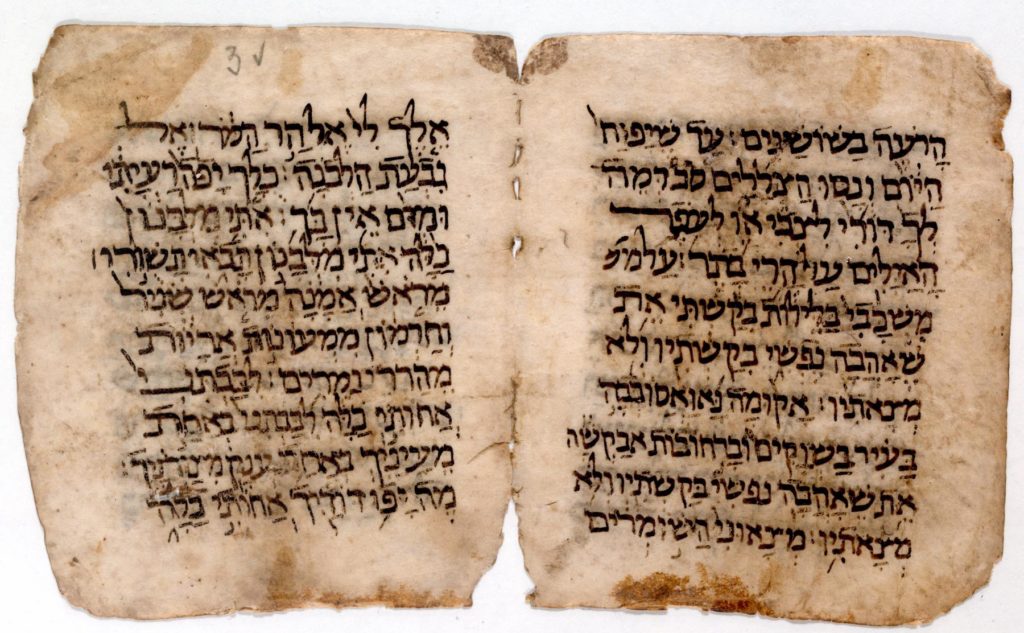 הרעה בשושנים: עד שיפוח
היום ונסו הצללים סב דמה
לך דודי לצבי או לעפר
האילים על הרי בתר: על מש
משכבי בלילות בקשתי את
שאהבה נפשי בקשתיו ולא
מצאתיו: אקומה נא ואסובבה
בעיר בשוקים וברחובות אבקשה
את שאהבה נפשי בקשתיו ולא
מצאתיו: מצאוני השומרים
3v
אלך לי אל הר המר ואל
גבעת הלבנה: כלך יפה רעיתי
ומום אין בך: אתי מלבנון
כלה אתי מלבנון תבאי תשורי
מראש אמנה מראש שניר
וחרמון ממעונות אריות
מהררי נמרים: לבבתני
אחותי כלה לבבתני באחת
מעיניך באחד ענק מצורניך:
מה יפו דודיך אחותי כלה